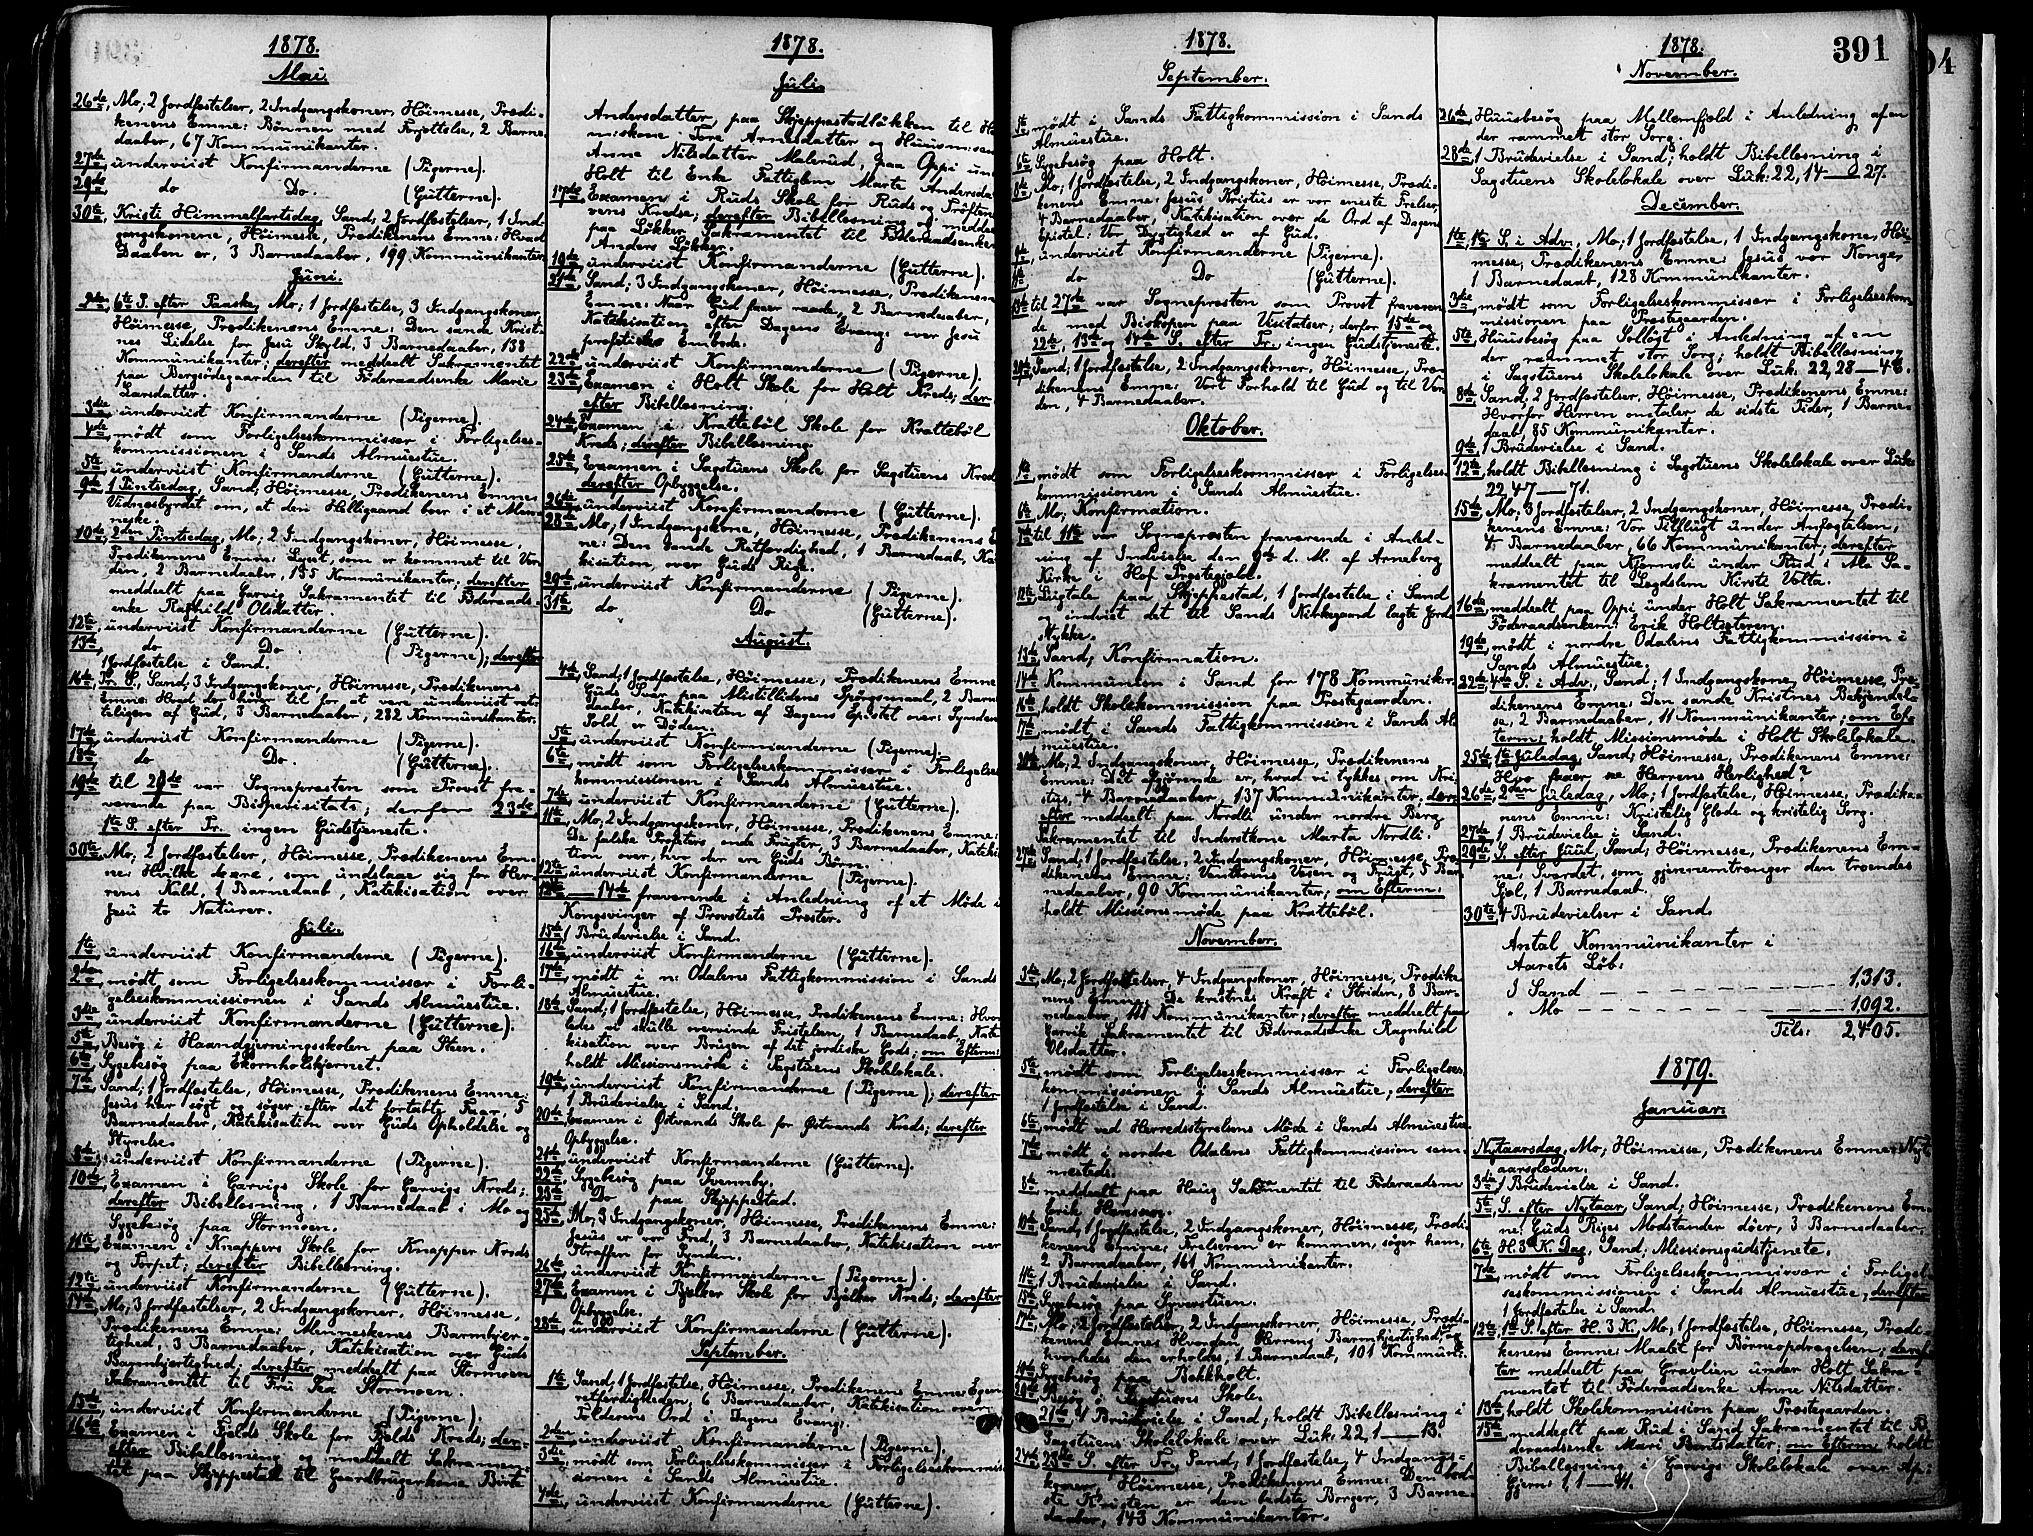 1878.
Mai.
26de, Mo; 2 Jordfestelser, 2 Indgangskoner, Höimesse, Prædi-
kenens Emne: Bönnen med Forjættelse, 2 Barne-
daaber, 67 Kommunikanter.
27de, underviist Konfirmanderne (Pigerne).
29de, do Do. (Gutterne).
30te, Kristi Himmelfartsdag, Sand, 2 Jordfestelser, 1 Ind-
gangskonene, Höimesse, Prædikenens Emne: Hvad
Daaben er, 3 Barnedaaber, 199 Kommunikanter.
Juni.
2den, 6te S. efter Paaske, Mo; 1 Jordfestelse, 3 Indgangskoner,
Höimesse, Prædikenens Emne: Den sande Krist-
nes Lidelse for Jesu Skyld, 3 Barnedaaber, 138
Kommunikanter; derefter meddeelt Sakramentet
paa Bergsödegaarden til Föderaadsenke Marie
Larsdatter.
3die, underviist Konfirmanderne (Pigerne).
4de, mödt som Forligelseskommissær i Forligelses-
kommissionen i Sands Almuestue.
5te, underviist Konfirmanderne (Gutterne).
9de, 1 Pintsedag, Sand; Höimesse, Prædikenens Emne:
Vidnesbyrdet om, at den Helligaand boer i et Men-
neske.
10de, 2den Pintsedag, Mo; 2 Indgangskoner, Höimesse,
Prædikenens Emne: Lyset, som er kommet til Ver-
den, 2 Barnedaaber, 155 Kommunikanter; derefter
meddeelt paa Garvig Sakramentet til Föderaads-
enke Ragnhild Olsdatter.
12te, underviist Konfirmanderne (Gutterne).
13de, do Do. (Pigerne); derefter
1 Jordfestelse i Sand.
16de, Tr. S., Sand; 3 Indgangskoner, Höimesse, Prædikenens
Emne: Hvad der hörer til for at være underviist ret-
teligen af Gud, 3 Barnedaaber, 282 Kommunikanter.
17de, underviist Konfirmanderne (Pigerne).
18de, do Do. (Gutterne).
19de til 28de var Sognepresten som Provst fra-
værende paa Bispevisitats; derfor 23de
1te S. efter Tr. ingen Gudstjeneste.
30te, Mo; 2 Jordfestelser, Höimesse, Prædikenens Em-
ne: Hvilke de ere, som undslaae sig for Her-
rens Kald, 1 Barnedaab, Katekisation over
Jesu to Naturer.
Juli.
1te, underviist Konfirmanderne (Pigerne).
2den, mödt som Forligelseskommissær i Forli-
gelseskommissionen i Sands Almuestue.
3die, underviist Konfirmanderne (Gutterne).
5te, Besög i Haandgjerningsskolen paa Steen.
6te, Sygebesög paa Ekornholskjernet.
7de, Sand; 1 Jordfestelse, Höimesse, Prædikenens Emne:
Jesus har sögt og söger efter det fortabte Faar, 5
Barnedaaber, Katekisation over Guds Opholdelse og
Styrelse.
8de, underviist Konfirmanderne (Pigerne).
10de, Examen i Garvigs Skole for Garvigs Kreds;
derefter Bibellæsning, 1 Barnedaab i Mo og
Sygebesög paa Stormoen.
11te, Examen i Knappers Skole for Knapper Kreds
og Torpet; derefter Bibellæsning.
12te, underviist Konfirmanderne (Gutterne).
14de, Mo; 3 Jordfestelser, 2 Indgangskoner, Höimesse,
Prædikenens Emne: Menneskenes Barmhjer-
tighed, 3 Barnedaaber, Katekisation over Guds
Barmhjertighed; derefter meddeelt paa Stormoen
Sakramentet til Fru Fea Stormoen.
15de, underviist Konfirmanderne (Pigerne).
16de, Examen i Fjelds Skole for Fjelds Kreds; der-
efter Bibellæsning og meddeelt Sakramen-
tet paa Skjeppestad til Gaardbrugerkone Berte
1878.
Juli
Andersdatter, paa Skjeppestadlökken til
mandskone Tore Arnesdatter og Huusmands
Anne Nilsdatter Malerud, paa Oppi un
Holt til Enke Fattiglem Marte Andersda
17de, Examen i Ruds Skole for Ruds og Tröften
vens Kredse; derefter Bibellæsning og meddelt
paa Lökker Sakramentet til Föderaadsenke
Anders Lökker.
19de, underviist Konfirmanderne (Gutterne).
21de, Sand; 3 Indgangskoner, Höimesse, Prædikenens
Emne: Naar Gud faaer raade, 2 Barnedaaber,
Katekisation efter Dagens Evang: over Jesu
profetiske Embede.
22de, underviist Konfirmanderne (Pigerne).
23de, Examen i Holt Skole for Holt Kreds; der-
efter Bibellæsning.
24de, Examen i Krattebøl Skole for Krattebøl
Kreds; derefter Bibellæsning.
25de, Examen i Sagstuens Skole for Sagstuens Kreds
derefter Opbyggelse.
26de, underviist Konfirmanderne (Gutterne).
28de, Mo; 1 Indgangskone, Höimesse, Prædikenens E
ne: Den sande Retfærdighed, 1 Barnedaab, Kate
kisation over Guds Rige.
29de, underviist Konfirmanderne (Pigerne).
31te, do Do (Gutterne).
August.
4de, Sand; 1 Jordfestelse, Höimesse, Prædikenens Emne
Guds Svar paa Mistillidens Spörgsmaal, 2 Barne
daaber, Katekisation af Dagens Epistel over: Syndens
Sold er Döden.
5te, underviist Konfirmanderne (Pigerne).
6te, mödt som Forligelseskommissær i Forligelses
kommissionen i Sands Almuestue.
7de, underviist Konfirmanderne (Gutterne).
11te, Mo, 2 Indgangskoner, Höimesse, Prædikenens Emne:
De falske Profeters onde Frugter, 3 Barnedaaber, Kateki
tion over, hvo der ere Guds Börn.
12te, underviist Konfirmanderne (Pigerne).
13de — 14de fraværende i Anledning af et Möde i
Kongsvinger af Provstiets Prester.
15de, 1 Brudevielse i Sand.
16de, underviist Konfirmanderne (Gutterne).
17de, mödt i n: Odalens Fattigkommission i Sands
Almuestue.
18de, Sand; 1 Jordfestelse, Höimesse, Prædikenens Emne: Hvor
ledes vi skulle overvinde Fristelsen, 1 Barnedaab, Kate
kisation over Brugen af det jordiske Gods; om Efterm:
holdt Missionsmöde i Sagstuens Skolelokale.
19de, underviist Konfirmanderne (Pigerne); derefter
1 Brudevielse i Sand.
20de, Examen i Østvands Skole for Østvands Kreds; derefter
Opbyggelse.
21de, underviist Konfirmanderne (Gutterne).
22de, Sygebesög paa Svennby.
23de, Do paa Skjeppestad.
25de, Mo, 3 Indgangskoner, Höimesse, Prædikenens Emne:
Jesus er vor Fred, 3 Barnedaaber, Katekisation over
Straffen for Synden.
26de, underviist Konfirmanderne (Pigerne).
27de, Examen i Bjelker Skole for Bjelker Kreds; derefter
Opbyggelse.
28de, underviist Konfirmanderne (Gutterne).
September.
1te, Sand, 1 Jordfestelse, Höimesse, Prædikenens Emne: Egen
retfærdigheden, 6 Barnedaaber, Katekisation over
Tolderens Ord i Dagens Evang:
2den, underviist Konfirmanderne (Pigerne).
3die, mödt som Forligelseskommissær i Forligelseskommiss
sionen i Sands Almuestue.
4de, underviist Konfirmanderne (Gutterne).
1878.
September.
5te, mödt i Sands Fattigkommission i Sands
Almuestue.
6te, Sygebesög paa Holt.
8de, Mo; 1 Jordfestelse, 2 Indgangskoner, Höimesse, Prædi-
kenens Emne: Jesus Kristus er vor eneste Frelser,
4 Barnedaaber, Katekisation over de Ord af Dagens
Epistel: Vor Dygtighed er af Gud.
9de, underviist Konfirmanderne (Pigerne).
do Do (Gutterne).
13de til 27de var Sognepresten som Provst fraværen
de med Biskopen paa Visitatser; derfor 15de og
22de, 13de og 14de S. efter Tr. ingen Gudstjeneste.
29de, Sand; 1 Jordfestelse, 2 Indgangskoner, Höimesse, Præ-
dikenens Emne: Vort Forhold til Gud og til Ver-
den, 4 Barnedaaber.
Oktober.
1te, mödt som Forligelseskommissær i Forligelses-
kommissionen i Sands Almuestue.
6te, Mo, Konfirmation.
7de til 11te var Sognepresten fraværende i Anled-
ning af Indvielse den 9de d. M. af Arneberg
Kirke i Hof Prestegjeld.
12te, Liigtale paa Skjeppestad, 1 Jordfestelse i Sand
og indviet det til Sands Kirkegaard lagte Jord-
stykke.
13de, Sand, Konfirmation.
14de, Kommunion i Sand for 178 Kommunikr.
16de, holdt Skolekommission paa Prestegaarden.
17de, mödt i Sands Fattigkommission i Sands Al-
muestue.
20de, Mo; 2 Indgangskoner, Höimesse, Prædikenens
Emne: Det Afgjörende er, hvad vi tykkes om Kri-
stus, 4 Barnedaaber, 137 Kommunikanter; der-
efter meddeelt paa Nordli under nordre Berg
Sakramentet til Inderstkone Marte Nordli.
27de, Sand, 1 Jordfestelse, 2 Indgangskoner, Höimesse, Præ-
dikenens Emne: Vantroens Væsen og Frugt, 5 Bar-
nedaaber, 90 Kommunikanter; om Efterm:
holdt Missionsmöde paa Krattebøl.
November.
3die, Mo, 2 Jordfestelser, 4 Indgangskoner, Höimesse, Prædike
nens Emne: De kristnes Kraft i Striden, 8 Bar-
nedaaber, 111 Kommunikanter; derefter meddeelt paa
Garvik Sakramentet til Föderaadsenke Ragnhild
Olsdatter.
5te, mödt som Forligelseskommissær i Forligelses
kommissionen i Sands Almuestue; derefter
1 Jordfestelse i Sand.
6te, mödt ved Herredsstyrelsens Möde i Sands Almuestue
7de, mödt i nordre Odalens Fattigkommission sam-
mesteds.
8de, meddeelt paa Haug Sakramentet til Föderaadsm
Erik Hansen.
10de, Sand, 1 Jordfestelse, 2 Indgangskoner, Höimesse, Prædi
kenens Emne: Frelseren er kommen, söger ham,
2 Barnedaaber, 161 Kommunikanter.
11te, 1 Brudevielse i Sand.
15de, Sygebesög paa Syverstuen.
17de, Mo; 2 Jordfestelser, 2 Indgangskoner, Höimesse, Prædi-
kenens Emne: Hvordan Herrens Barmhjertighed, og
hvorledes den erholdes, 1 Barnedaab, 101 Kommuni:
Sygebesög paa Bækkholt.
Besög i Sagstuens Skole.
21de, 4 Brudevielse i Sand; holdt Bibellæsning i
Sagstuens Skolelokale over Luk: 22, 1 — 13.
24de, 23de S. efter Tr., Sand, 1 Jordfestelse, 4 Indgangs-
koner, Höimesse, Prædikenens Emne: Den bed-
ste Kristen er den bedste Borger, 3 Barne-
daaber, 143 Kommunikanter.
1878.
391
November.
26de, Huusbesög paa Mellemfjeld i Anledning af en
der rammet stor Sorg.
28de, 1 Brudevielse i Sand; holdt Bibellæsning i
Sagstuens Skolelokale over Luk: 22, 14 — 27.
December.
1te, 1te S. i Adv., Mo; 1 Jordfestelse, 1 Indgangskone, Höi-
messe, Prædikenens Emne: Jesus vor Konge,
1 Barnedaab, 128 Kommunikanter.
3die, mödt som Forligelseskommissær i Forligelseskom
missionen paa Prestegaarden.
5te, Huusbesög paa Solløgt i Anledning af en
der rammet stor Sorg; holdt Bibellæsning
i Sagstuens Skolelokale over Luk: 22, 28 — 46.
8de, Sand, 2 Jordfestelser, Höimesse, Prædikenens Emne:
Hvorfor Herren omtaler de sidste Tider, 1 Barne-
daab, 85 Kommunikanter.
9de, 1 Brudevielse i Sand.
12te, holdt Bibellæsning i Sagstuens Skolelokale over Luk:
22, 47 — 71.
15de, Mo; 3 Jordfestelser, 2 Indgangskoner, Höimesse, Prædi-
kenens Emne: Vor Tilflugt under Anfægtelsen,
4 Barnedaaber, 66 Kommunikanter; derefter
meddeelt paa Kjernsli under Rud i Mo Sa-
kramentet til Lægdslem Kirsti Volta.
16de, meddeelt paa Oppi under Holt Sakramentet til
Föderaadsenkem: Erik Holtsæteren.
19de, mödt i nordre Odalens Fattigkommission i
Sands Almuestue.
22de, 4de S. i Adv., Sand; 1 Indgangskone, Höimesse, Præ-
dikenens Emne: Den sande Kristnes Bekjendel-
se, 2 Barnedaaber, 11 Kommunikanter; om Ef-
term: holdt Missionsmöde i Holt Skolelokale.
25de, 1te Juledag, Sand; Höimesse, Prædikenens Emne:
Hvo faaer see Herrens Herlighed?
26de, 2den Juledag, Mo; 1 Jordfestelse, Höimesse, Prædike-
nens Emne: Kristelig Glæde og kristelig Sorg.
27de, 1 Brudevielse i Sand.
29de, S. efter Juul, Sand; Höimesse, Prædikenens Em-
ne: Sværdet, som gjennemtrænger den troendes
Sjæl, 1 Barnedaab.
30te, 4 Brudevielser i Sand.
Antal Kommunikanter i
Aarets Löb:
I Sand — 1,313.
" Mo — 1,092.
Tils: 2,405.
1879.
Januar.
Nytaarsdag, Mo; Höimesse, Prædikenens Emne: Nyt-
aarsglæden.
3die, 1 Brudevielse i Sand.
5te, S. efter Nytaar, Sand; Höimesse, Prædikenens Em
ne: Guds Riges Modstander döer, 3 Barnedaaber.
6te, H. 3 K. Dag, Sand; Missionsgudstjeneste.
7de, mödt som Forligelseskommissær i Forligel-
seskommissionen i Sands Almuestue; derefter
1 Jordfestelse i Sand.
12te, 1te S. efter H. 3 K., Mo, 1 Jordfestelse, Höimesse, Prædi-
kenens Emne: Maalet for Börneopdragelsen; deref-
ter meddeelt paa Gravlien under Holt Sakra-
mentet til Föderaadsenke Anne Nilsdatter.
13de, holdt Skolekommission paa Prestegaarden.
15de, meddeelt paa Rud i Sand Sakramentet til Fö
deraadsende Mari Berntsdatter; om Efterm holdt
Bibellæsning i Garvigs Skolelokale over Ap:
Gjern: 1, 1 — 11.